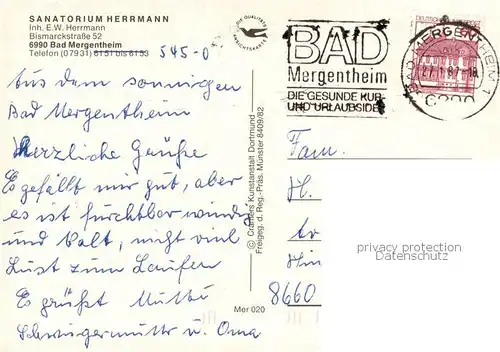 SANATORIUM HERRMANN
Inh. E.W. Herrmann
Bismarckstraße 52
6990 Bad Mergentheim
Telefon (07931) 6151 bis 6153 545-0
Aus dem sonnigen
Bad Mergentheim
Herzliche Grüße
Es gefällt mir gut, aber
es ist furchtbar windig
und kalt, nicht viel
Lust zum Laufen
Es grüßt Mutti
Schwiegermutti u. Oma
DIE QUALITÄTS
ANSICHTSKARTE
© Cramers Kunstanstalt Dortmund
Freigeg. d. Reg.-Präs. Münster 8409/82
Mer 020
BAD
Mergentheim
DIE GESUNDE KUR-
UND URLAUBSIDEE
DEUTSCHE BUNDESPOST
BAD MERGENTHEIM 1
6990
Fam.
H.
8660
privacy protection
Datenschutz